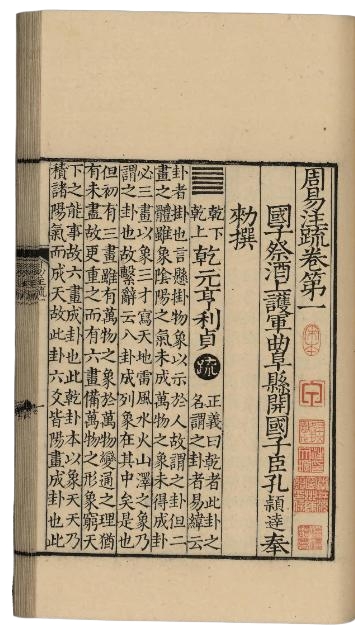 周易注疏卷第一
國子祭酒上護軍曲阜縣開國子臣孔穎達奉
勑撰
乾下
乾上
乾元亨利貞
疏
正義曰乾者此卦之
名謂之卦者易緯云
卦者掛也言懸掛物象以示於人故謂之卦但二
畫之體雖象陰陽之氣未成萬物之象未得成卦
必三畫以象三才寫天地雷風水火山澤之象乃
謂之卦也故繫辭云八卦成列象在其中矣是也
但初有三畫雖有萬物之象於萬物變通之理猶
有未盡故更重之而有六畫備萬物之形象窮天
下之能事故六畫成卦也此乾卦本以象天天乃
積諸陽氣而成天故此卦六爻皆陽畫成卦也此
宋本